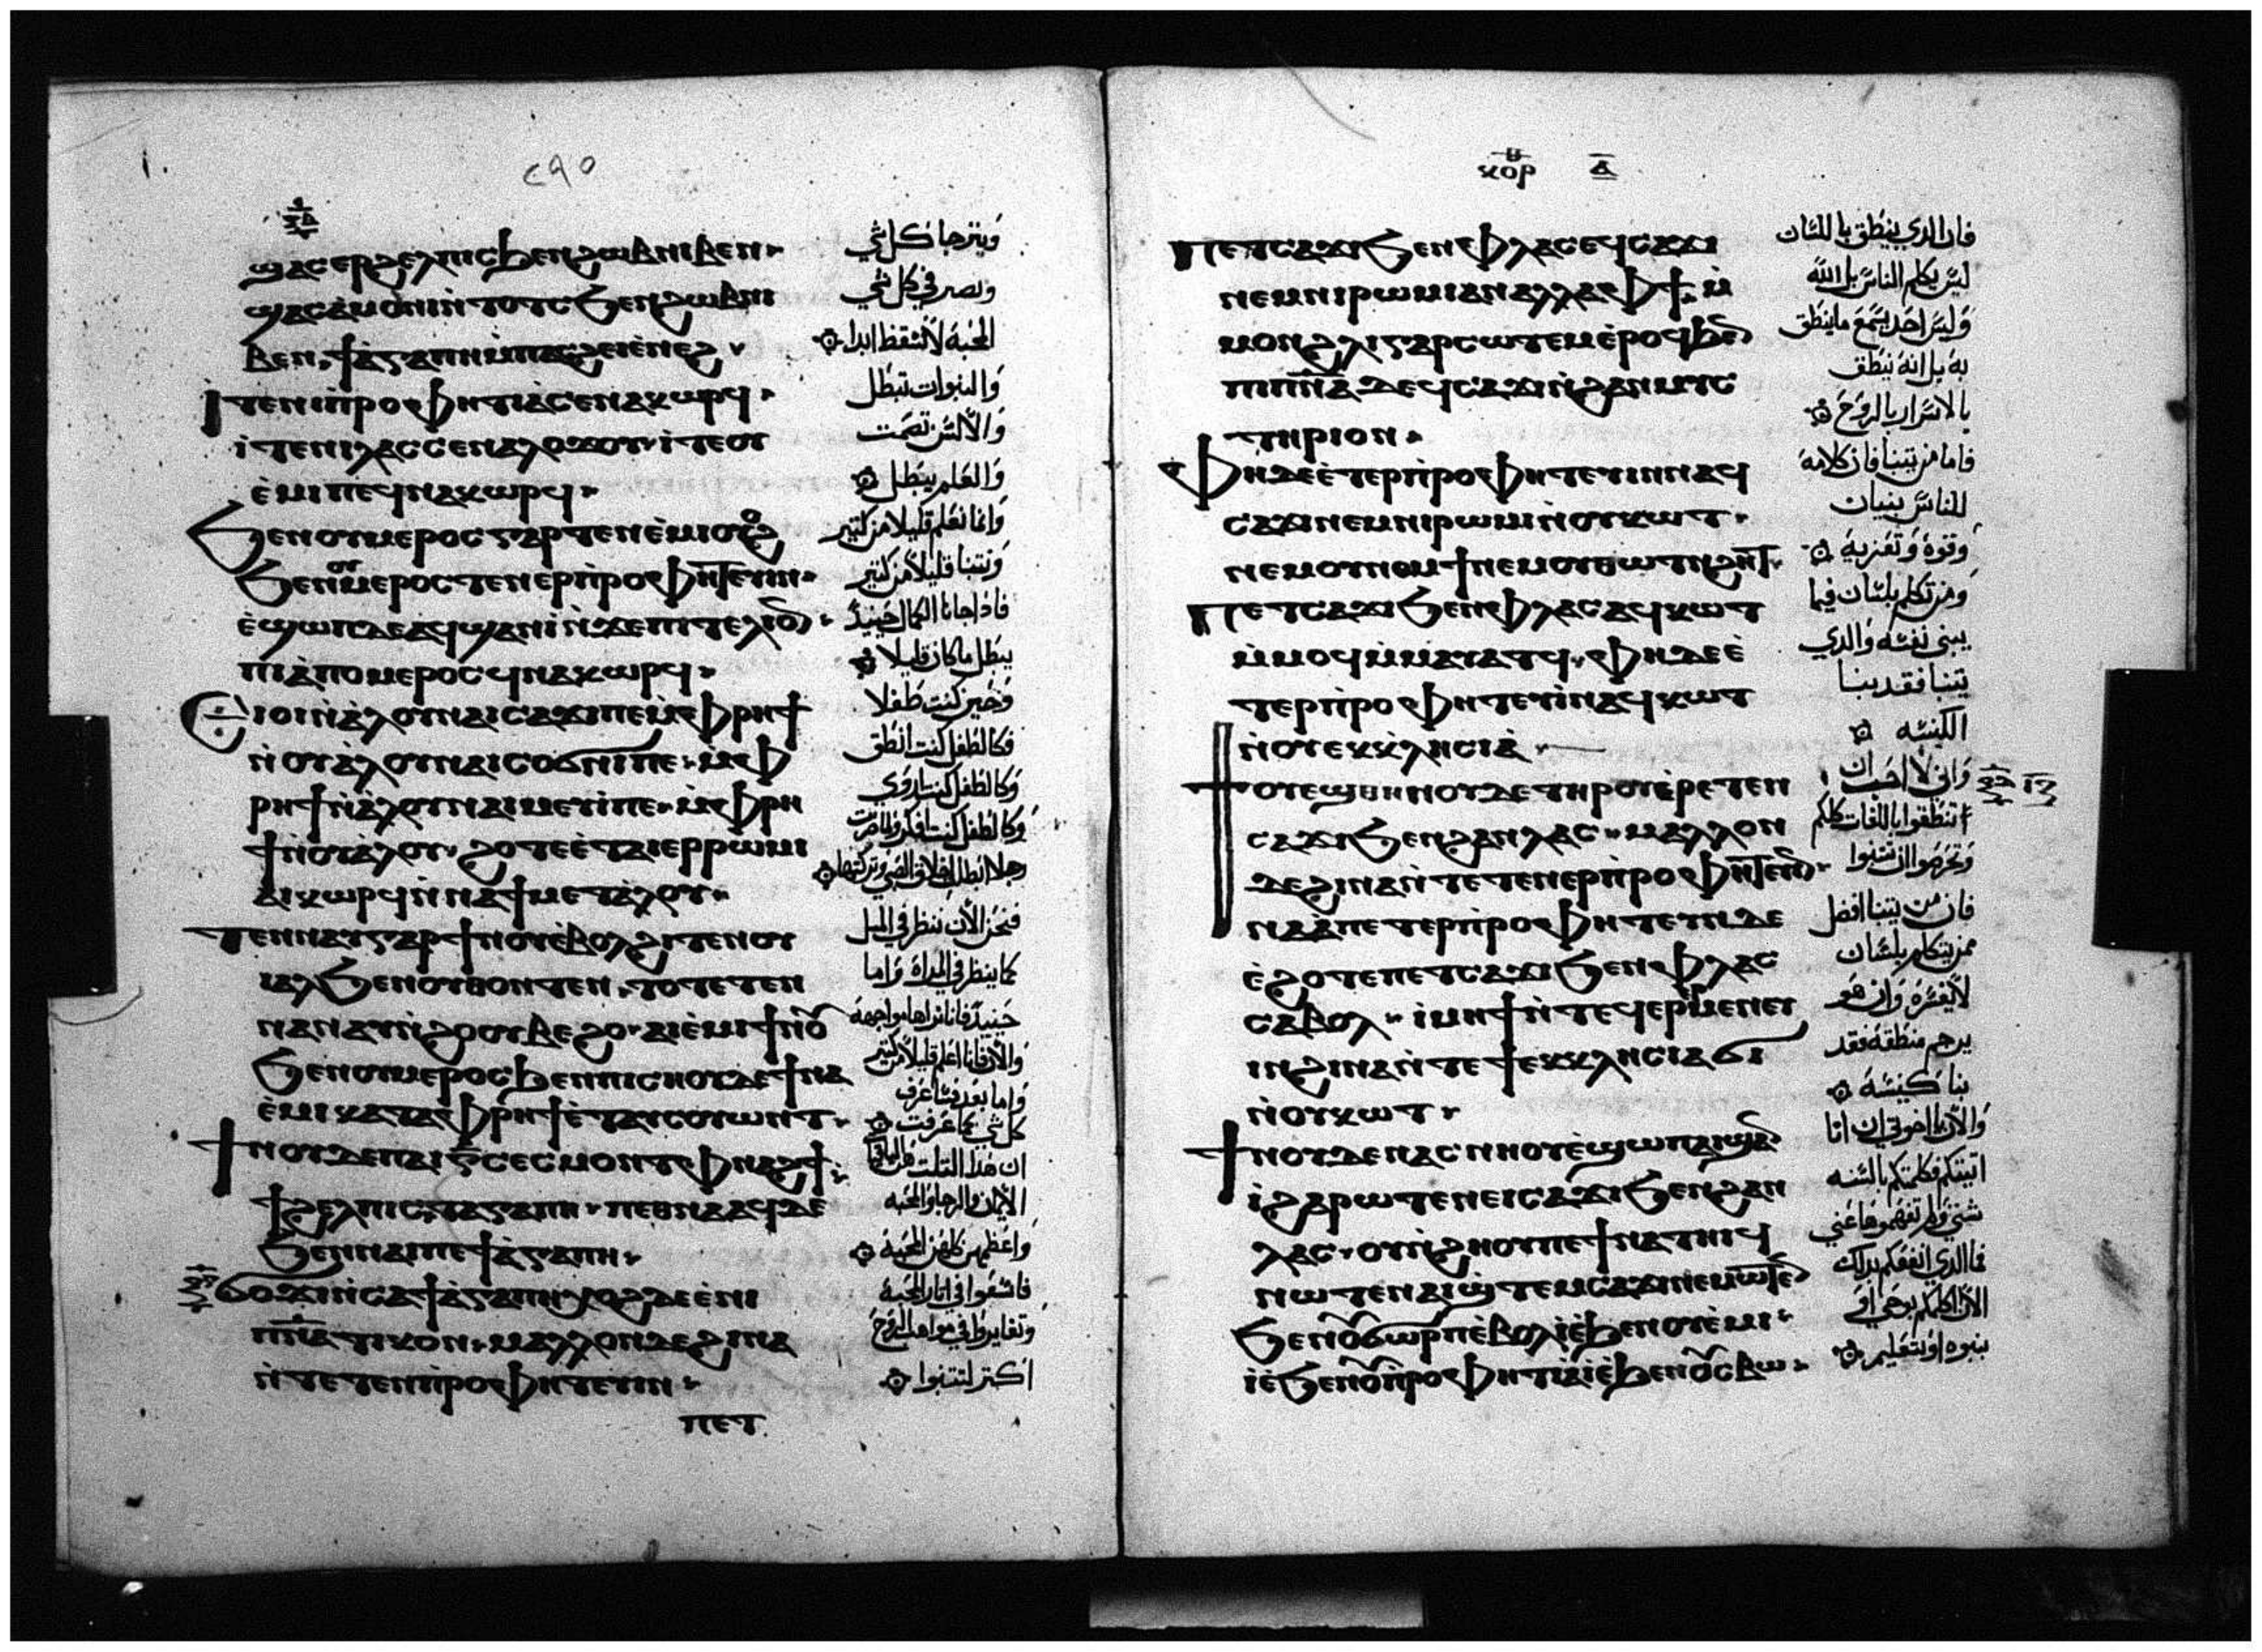 ϣⲁⲥⲉⲣϩⲉⲗⲡⲓⲥϧⲉⲛϩⲱⲃⲛⲓⲃⲉⲛ
ϣⲁⲥⲁ̀ⲙⲟⲛⲓⲛ̀ⲧⲟⲧⲥϧⲉⲛϩⲱⲃⲛⲓ
ⲃⲉⲛ ϯⲁ̀ⲅⲁⲡⲏⲙ̀ⲡⲁⲥϩⲉⲓⲉ̀ⲛⲉϩ
ⲓⲧⲉⲛⲓⲡ̀ⲣⲟⲫⲏⲧⲓⲁ̀ⲥⲉⲛⲁⲕⲱⲣϥ
ⲓⲧⲉⲛⲓⲗⲁⲥⲥⲉⲛⲁⲗⲟϫⲟⲩ ⲓⲧⲉⲟⲩ
ⲉ̀ⲙⲓⲡⲉϥⲛⲁⲕⲱⲣϥ
ϧⲉⲛⲟⲩⲙⲉⲣⲟⲥⲅⲁⲣⲧⲉⲛⲉ̀ⲙⲓⲟⲩⲟϩ
ϧⲉⲛⲟⲩⲙⲉⲣⲟⲥⲧⲉⲛⲉⲣⲡ̀ⲣⲟⲫⲏⲧⲉⲩⲓⲛ
ⲉ̀ϣⲱⲡⲇⲉⲁϥϣⲁⲛⲓ̀ⲛ̀ϫⲉⲡⲓⲧⲉⲗⲓⲟ̅
ⲡⲓⲁ̀ⲡⲟⲙⲉⲣⲟⲥϥⲛⲁⲕⲱⲣϥ
ϩⲟⲧⲉⲉⲓⲟⲓⲛ̀ⲁ̀ⲗⲟⲩⲛⲁⲓⲥⲁϫⲓⲡⲉⲙ̀ⲫⲣⲏϯ
ⲛ̀ⲟⲩⲁ̀ⲗⲟⲩⲛⲁⲓⲥⲟϭⲛⲓⲡⲉ ⲙ̀ⲫ
ⲣⲏϯⲛ̀ⲁ̀ⲗⲟⲩⲛⲁⲓⲙⲉⲩⲓ̀ⲡⲉ ⲙ̀ⲫⲣⲏ
ϯⲛ̀ⲟⲩⲁ̀ⲗⲟⲩ ϩⲟⲧⲉⲉ̀ⲧⲁⲓⲉⲣⲣⲱⲙⲓ
ⲁⲓⲕⲱⲣϥⲛ̀ⲛⲁϯⲙⲉⲧⲁ̀ⲗⲟⲩ
ⲧⲉⲛⲛⲁⲩⲅⲁⲣϯⲛⲟⲩⲉ̀ⲃⲟⲗϩⲓⲧⲉⲛⲟⲩ
ⲓⲁⲗϧⲉⲛⲟⲩⲑⲟⲛⲧⲉⲛ ⲧⲟⲧⲉⲧⲉⲛ
ⲛⲁⲛⲁⲩⲛ̀ϩⲟⲟⲩⲃⲉϩⲟ ⲁⲓⲉ̀ⲙⲓϯⲛⲟⲩ
ϧⲉⲛⲟⲩⲙⲉⲣⲟⲥϧⲉⲛⲡⲓⲥⲏⲟⲩⲇⲉϯⲛⲁ
ⲉ̀ⲙⲓⲕⲁⲧⲁⲫⲣⲏϯⲉ̀ⲧⲁⲓⲥⲟⲩⲱⲛⲧ
ϯⲛⲟⲩⲇⲉⲡⲁⲓⲅ̅ⲥⲉⲥⲙⲟⲛⲧⲫⲛⲁϩϯ
ϯϩⲉⲗⲡⲓⲥ ϯⲁⲅⲁⲡⲏ ⲡⲉⲑⲛⲁⲁϥⲇⲉ
ϧⲉⲛⲛⲁⲓⲡⲉϯⲁ̀ⲅⲁⲡⲏ
ϭⲟϫⲓⲛ̀ⲥⲁϯⲁ̀ⲅⲁⲡⲏⲭⲟϩⲇⲉⲉ̀ⲛⲓ
ⲡ̅ⲛ̅ⲁ̅ⲧⲓⲕⲟⲛ ⲙⲁⲗⲗⲟⲛⲇⲉϩⲓⲛⲁ
ⲛ̀ⲧⲉⲧⲉⲛⲡ̀ⲣⲟⲫⲏⲧⲉⲩⲓⲛ
ⲡⲉⲧ
ويترجا كل شي
وتصبر في كل شي
المحبة لا تسقط ابدا
والنبوات تبطل
والألسن تصمت
والعلم يبطل
وانما نعلم قليلا من كتير
ونتنبا قليلا من كتير
فاذا جانا الكمال حينيذ
يبطل ما كان قليلا
وحين كنت طفلا
فكالطفل كنت انطق
وكالطفل كنت اروي
فنحن الآن ننظر في المثل
كما ينظر في المراة واما
والآن فانا اعلم قليلا من كتير
واما بعد فسأعرف
كل شي كما عرفت
الايمان والرجا والمحبة
واعظمهن كلهن المحبة
فاسعوا في اثار المحبة
وتغايروا في مواهب الروح
اكتر لتتنبوا
ⲕⲟⲣ ⲁ̅
ⲡⲉⲧⲥⲁϫⲓϧⲉⲛⲫⲗⲁⲥⲉϥⲥⲁϫⲓ
ⲛⲉⲙⲛⲓⲣⲱⲙⲓⲁⲛⲁⲗⲗⲁⲫϯ ⲙ̀
ⲙⲟⲛϩⲗⲓⲅⲁⲣⲥⲱⲧⲉⲙⲉ̀ⲣⲟϥϧⲉ̅
ⲡⲓⲡ̅ⲛ̅ⲁ̅ⲇⲉϥⲥⲁϫⲓⲛ̀ϩⲁⲛⲙⲩⲥ
ⲧⲏⲣⲓⲟⲛ
ⲫⲏⲇⲉⲉ̀ⲧⲉⲣⲡ̀ⲣⲟⲫⲏⲧⲉⲩⲓⲛⲛⲁϥ
ⲥⲁϫⲓⲛⲉⲙⲛⲓⲣⲱⲙⲓⲛ̀ⲟⲩⲕⲱⲧ
ⲛⲉⲙⲟⲩⲛⲟⲙϯⲛⲉⲙⲟⲩⲑⲱⲧⲛϩⲏⲧ
ⲡⲉⲧⲥⲁϫⲓϧⲉⲛⲫⲗⲁⲥⲁϥⲕⲱⲧ
ⲙ̀ⲙⲟϥⲙ̀ⲙⲁⲩⲁⲧϥ ⲫⲏⲇⲉⲉ̀
ⲧⲉⲣⲡ̀ⲣⲟⲫⲏⲧⲉⲩⲓ̀ⲛⲁϥⲕⲱⲧ
ⲛ̀ⲟⲩⲉⲕⲕ̀ⲗⲏⲥⲓⲁ̀
ϯⲟⲩⲉϣⲑⲏⲛⲟⲩⲇⲉⲧⲏⲣⲟⲩⲉ̀ⲣⲉⲧⲉⲛ
ⲥⲁϫⲓϧⲉⲛϩⲁⲛⲗⲁⲥ ⲙⲁⲗⲗⲟⲛ
ⲇⲉϩⲓⲛⲁⲛ̀ⲧⲉⲧⲉⲛⲉⲣⲡ̀ⲣⲟⲫⲏⲧⲉⲩⲓⲛ
ⲛⲁⲁ̀ⲡⲉⲧⲉⲣⲡ̀ⲣⲟⲫⲏⲧⲉⲩⲓⲛⲇⲉ
ⲉ̀ϩⲟⲧⲉⲡⲉⲧⲥⲁϫⲓϧⲉⲛⲫⲗⲁⲥ
ⲥⲁⲃⲟⲗ ⲓ̀ⲙⲏϯⲛ̀ⲧⲉϥⲉⲣⲙⲉⲛⲉⲩ
ⲓⲛϩⲓⲛⲁⲛ̀ⲧⲉϯⲉⲕⲕⲗⲏⲥⲓⲁϭⲓ
ⲛ̀ⲟⲩⲕⲱⲧ
ϯⲛⲟⲩⲇⲉⲛⲁⲥⲛⲏⲟⲩⲉ̀ϣⲱⲡⲁⲓϣⲁ̅
ⲓ̀ϩⲁⲣⲱⲧⲉⲛⲉⲓⲥⲁϫⲓϧⲉⲛϩⲁⲛ
ⲗⲁⲥ ⲟⲩⲛ̀ϩⲏⲟⲩⲡⲉϯⲛⲁⲧⲏⲓϥ
ⲛⲱⲧⲉⲛⲁⲓϣ̀ⲧⲉⲙⲥⲁϫⲓⲛⲉⲙⲱⲧⲉ̅
ϧⲉⲛⲟⲩϭⲱⲣⲡⲉ̀ⲃⲟⲗⲓⲉ̀ϧⲉⲛⲟⲩⲉ̀ⲙⲓ
ⲓⲉ̀ϧⲉⲛⲟⲩⲡ̀ⲣⲟⲫⲏⲧⲓⲁ̀ⲓⲉ̀ϧⲉⲛⲟⲩⲥⲃⲱ
فان الذي ينطق باللسان
ليس يكلم الناس بل الله
وليس احد يسمع ما ينطق
به بل انه ينطق
بالاسرار بالروح
فاما من يتنبا فان كلامه
للناس بنيان
وقوة وتعزية
ومن تكلم بلسان فانما
يبني نفسه والذي
يتنبا فقد بنا
الكنيسه
واني لاحب ان
تنطقوا باللغات كلكم
وتحرصوا ان تتنبوا
فان من يتنبا افضل
ممن يتكلم بلسان
لا يفسره وان هو
يرجم منطقه فقد
بنا كنيسة
والآن يا اخوتي ان انا
اتيتكم فكلمتكم بالسنه
شتى ولم تفهموها عني
فما الذي انفعكم بذلك
بنبوه او بتعليم